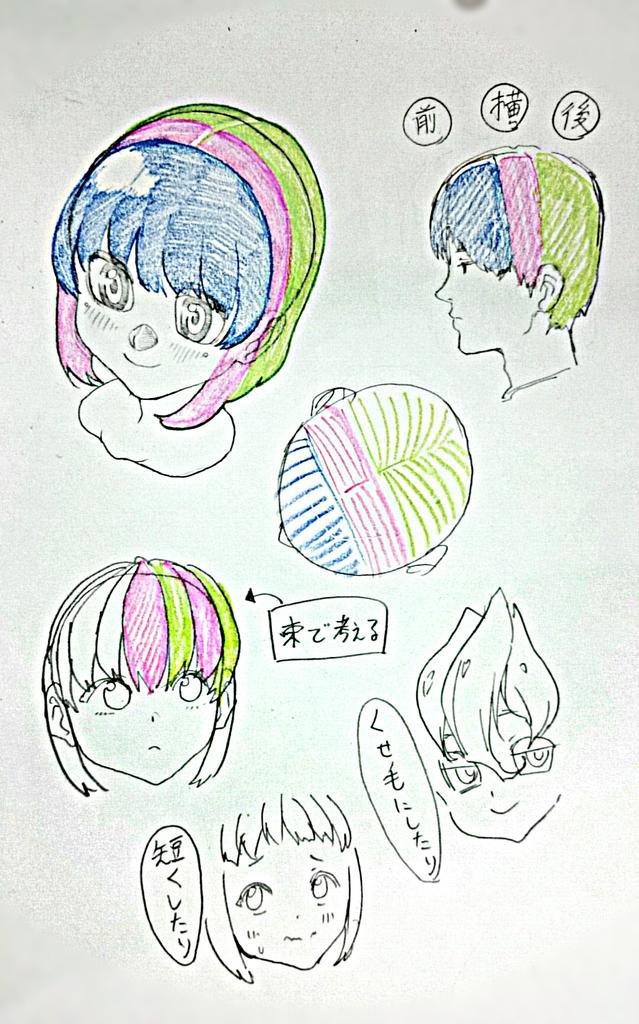 前
横
後
束で考える
くせ毛にしたり
短くしたり